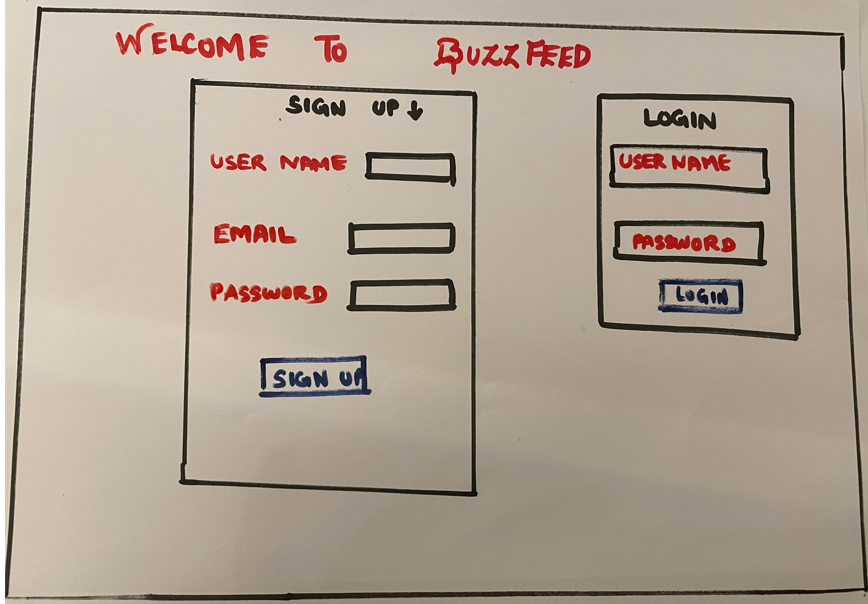 WELCOME TO BUZZFEED
SIGN UP ↓
USER NAME
EMAIL
PASSWORD
SIGN UP
LOGIN
USER NAME
PASSWORD
LOGIN